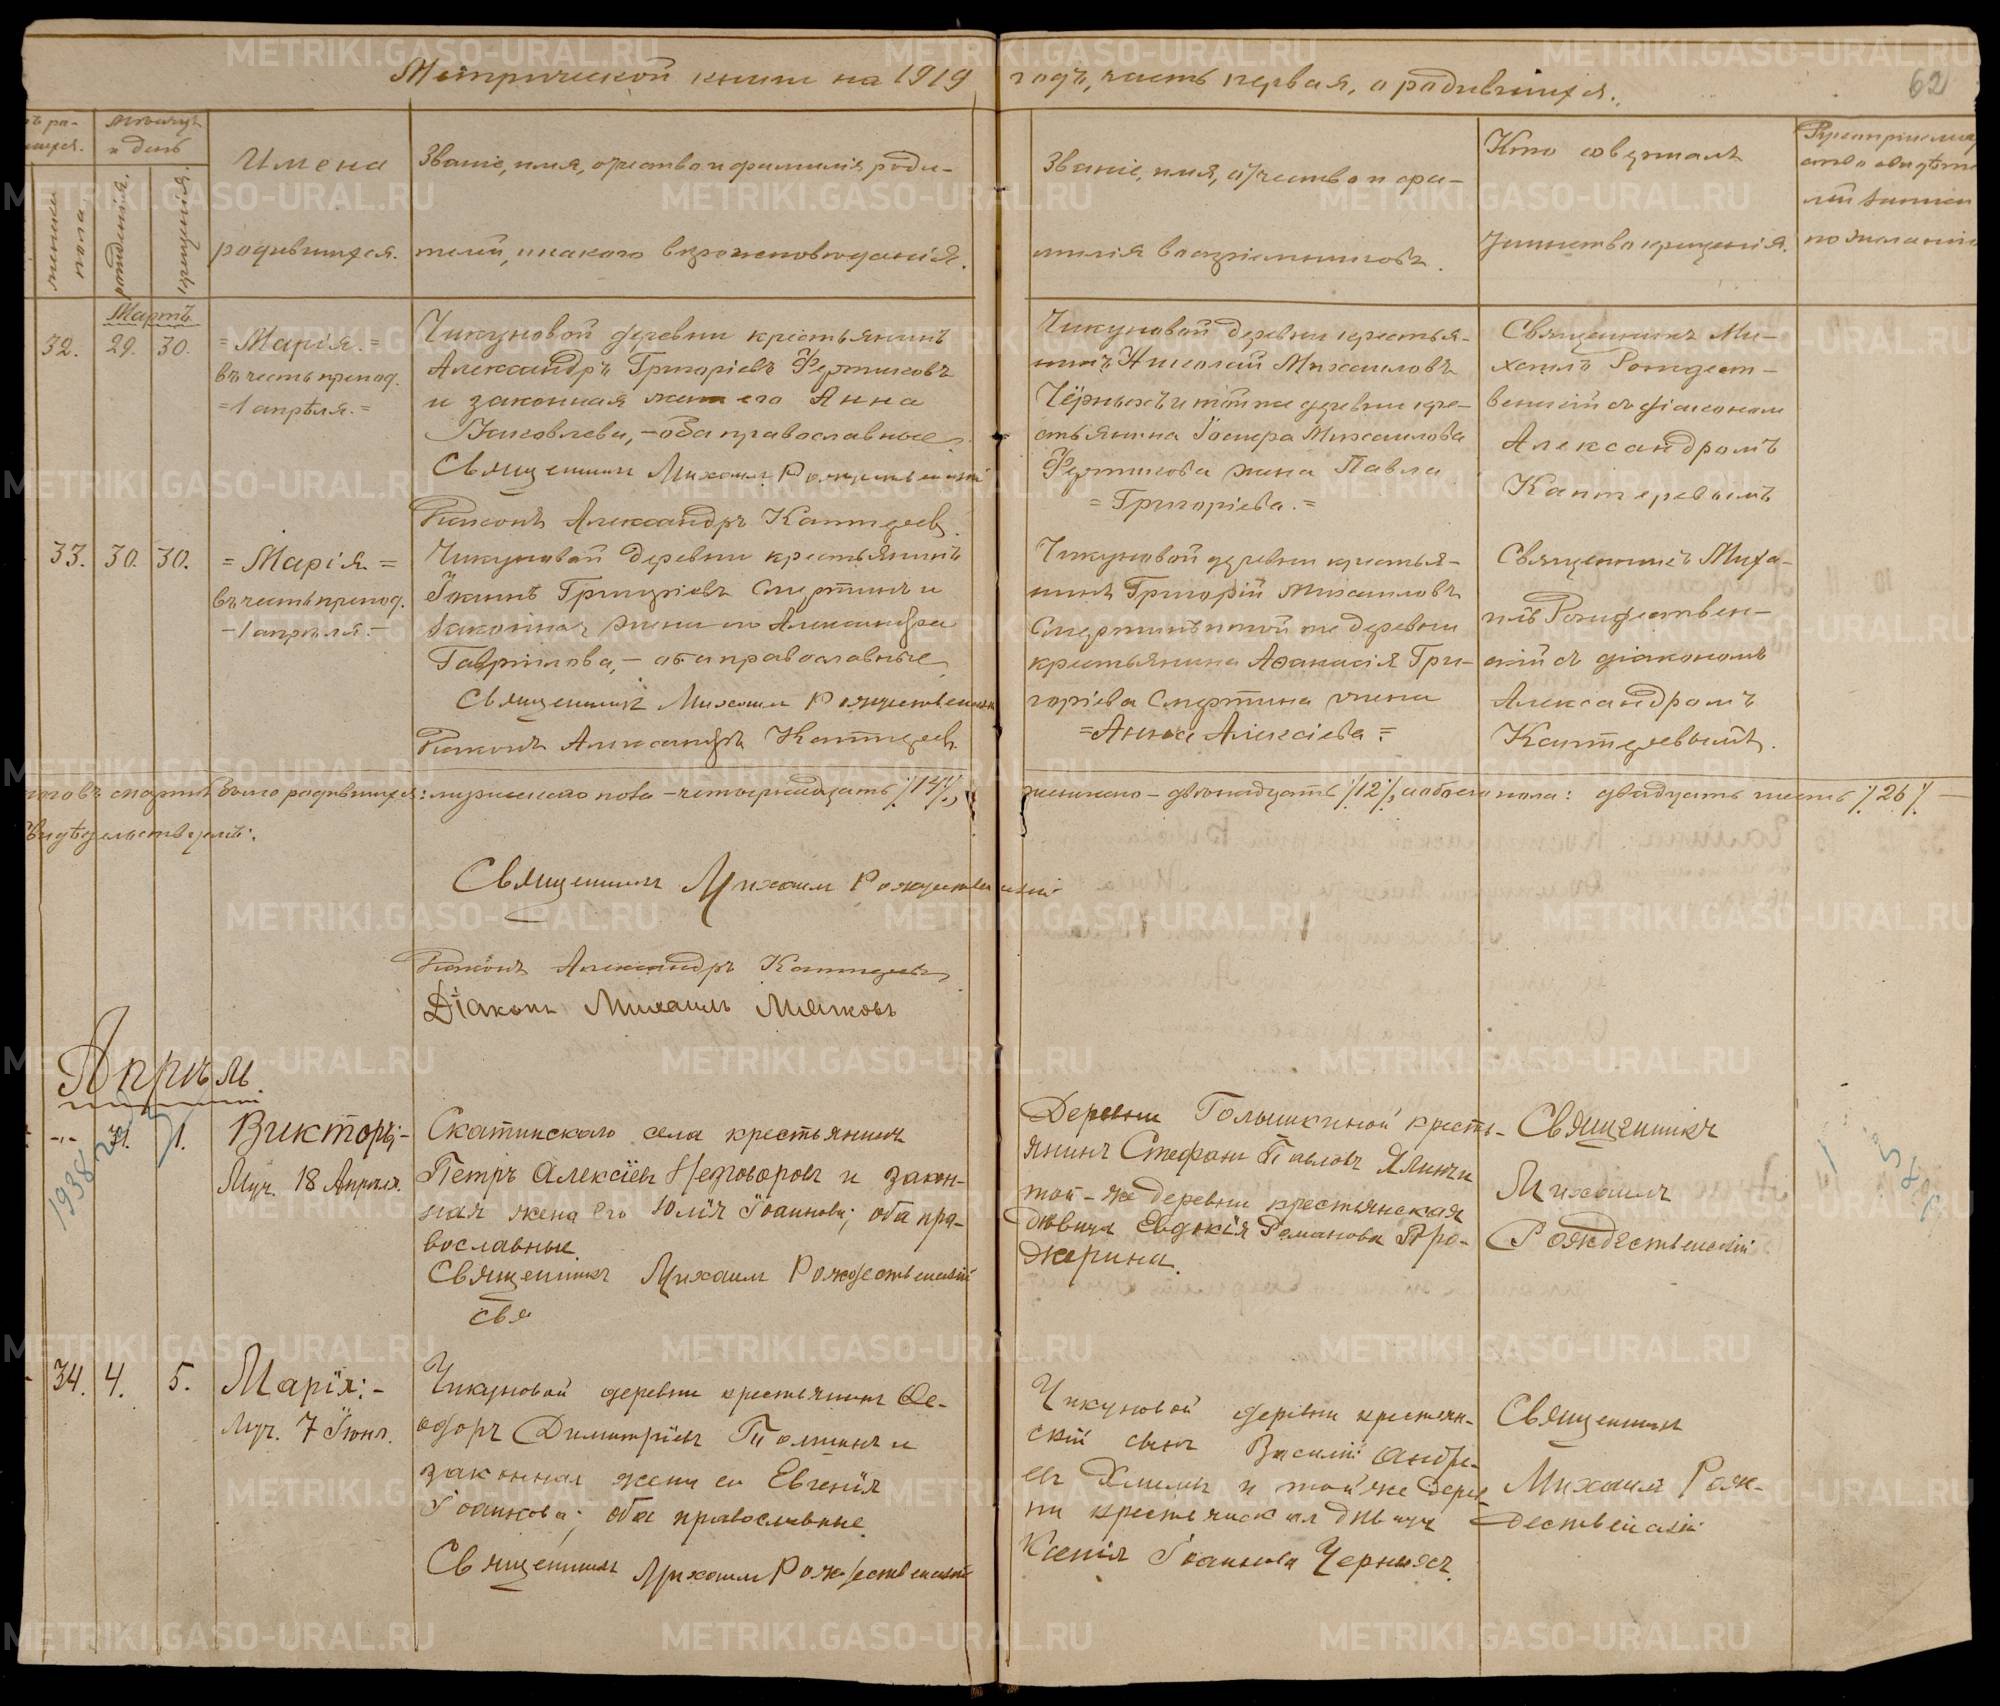 Метрической книги на 1919 годъ, часть первая, о родившихся.
62
Мѣсяцъ
и день
женска
пола.
рожденія.
крещенія.
Имена
родившихся.
Званіе, имя, отчество и фамилія роди-
телей, и какого вѣроисповѣданія.
Званіе, имя, отчество и фа-
милія воспріемниковъ.
Кто совершалъ
таинство крещенія.
Мартъ
32. 29. 30.
= Марія. =
въ честь препод.
= 1 апрѣля. =
Чикуновой деревни крестьянинъ
Александръ Григоріевъ Фертиковъ
и законная жена его Анна
Яковлева, – оба православные.
Священникъ Михаилъ Рождественскій
Діаконъ Александръ Каптеревъ.
Чикуновой деревни крестья-
нинъ Николай Михаиловъ
Чёрныхъ и той же деревни кре-
стьянина Михаилова
Фертикова жена Павла
= Григоріева. =
Священникъ Ми-
хаилъ Рождест-
венскій съ діакономъ
Александромъ
Каптеревымъ
33. 30. 30.
= Марія =
въ честь препод.
– 1 апрѣля. –
Чикуновой деревни крестьянинъ
Іоаннъ Григоріевъ Смертинъ и
законная жена его Александра
Гавріилова, – оба православные
Священникъ Михаилъ Рождественскій
Діаконъ Александръ Каптеревъ
Чикуновой деревни крестья-
нинъ Григорій Михаиловъ
Смертинъ и той же деревни
крестьянина Афанасія Гри-
горіева Смертина жена
= Анна Алексіева =
Священникъ Миха-
илъ Рождествен-
скій съ діакономъ
Александромъ
Каптеревымъ.
Итого въ мартѣ было родившихся: мужескаго пола – четырнадцать /14/, женскаго – двѣнадцать /12/, и обоего пола: двадцать шесть /26/ –
Свидѣтельствуемъ:
Священникъ Михаилъ Рождественскій
Діаконъ Александръ Каптеревъ
Діаконъ Михаилъ Мячковъ
Апрѣль.
1938
-"- 31. 1.
Викторъ; -
Муч. 18 Апрѣля.
Скатинскаго села крестьянинъ
Петръ Алексіевъ Неговоровъ и закон-
ная жена его Юлія Іоаннова; оба пра-
вославные.
Священникъ Михаилъ Рождественскій
Свя
Деревни Голышкиной кресть-
янинъ Стефанъ Павловъ и
той-же деревни крестьянская
дѣвица Евдокія Романова Про-
жерина.
Священникъ
Михаилъ
Рождественскій
34. 4. 5.
Марія: -
Муч. 7 Іюня.
Чикуновой деревни крестьянинъ Ѳе-
одоръ Димитріевъ и
законная жена его Евгенія
Іоаннова; оба православные.
Священникъ Михаилъ Рождественскій
Чикуновой деревни крестьян-
скій сынъ Василій Андре-
евъ и той же дерев-
ни крестьянская дѣвица
Ксенія Іоаннова Черныхъ.
Священникъ
Михаилъ Рож-
дественскій
METRIKI.GASO-URAL.RU